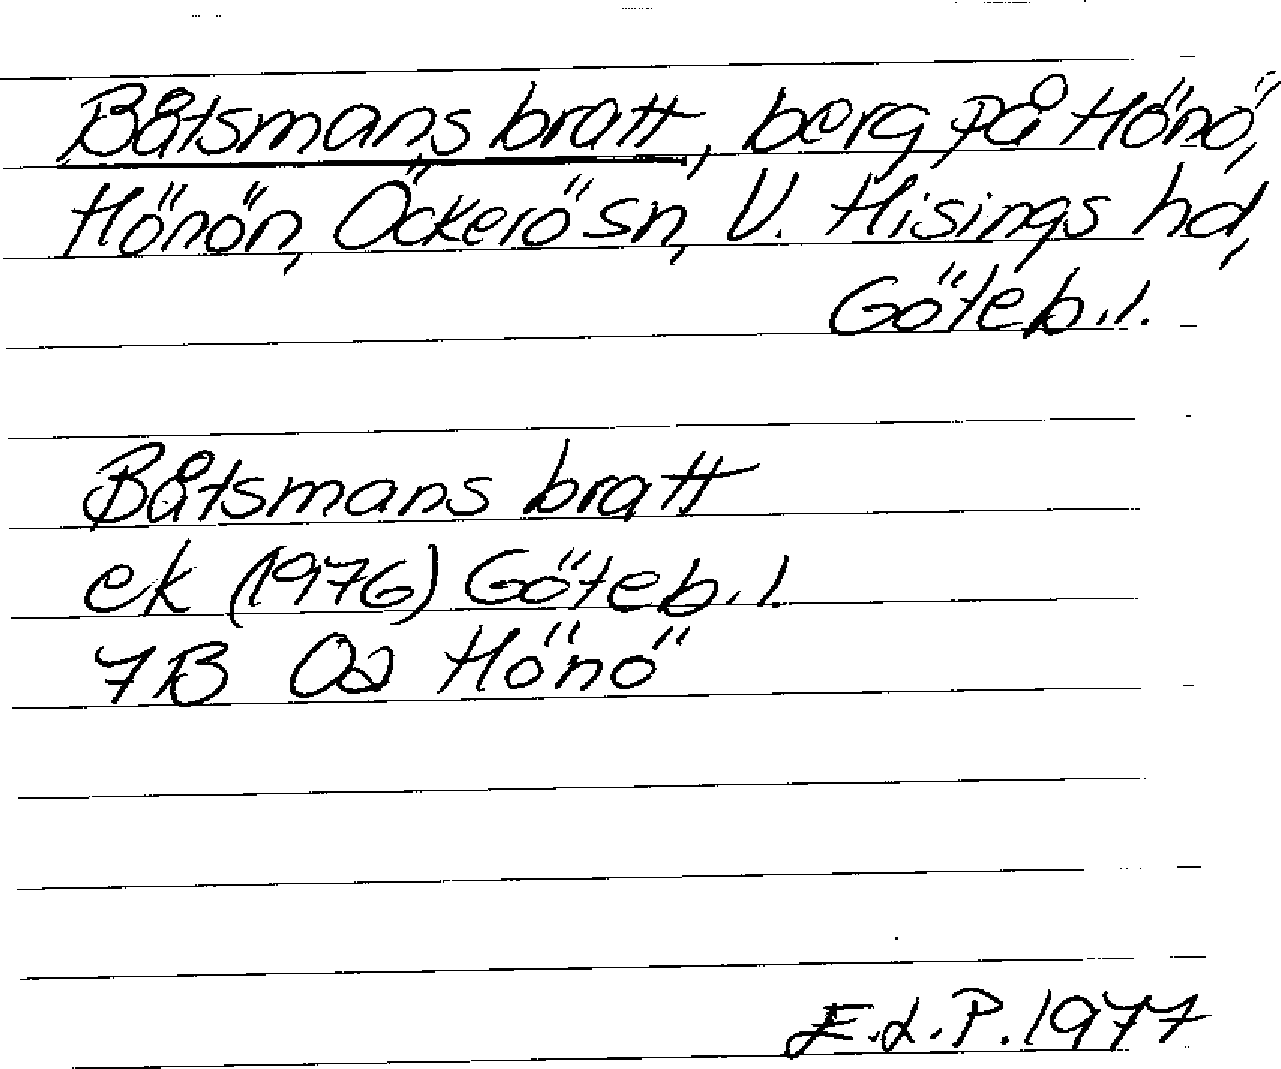 Båtsmans bratt, berg på Hönö,
Hönön, Öckerö sn, V. Hisings hd,
Göteb.l.
Båtsmans bratt
ek (1976) Göteb.l.
7B 0a Hönö
E.L.P. 1977